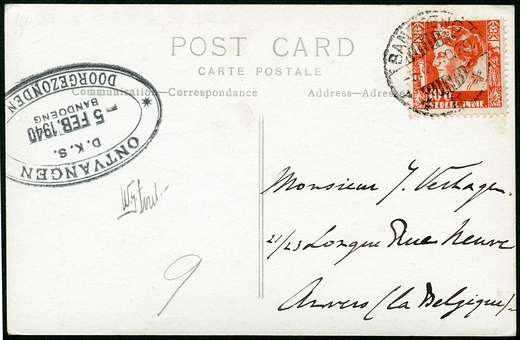 POST CARD
CARTE POSTALE
Communication—Correspondance
Address—Adresse
BANDOENG
NEDERL. INDIË
ONTVANGEN
D. K. S.
5 FEB. 1940
BANDOENG
DOORGEZONDEN
Monsieur J. Verhagen
21/23 Longue Rue Neuve
Anvers (la Belgique)
9